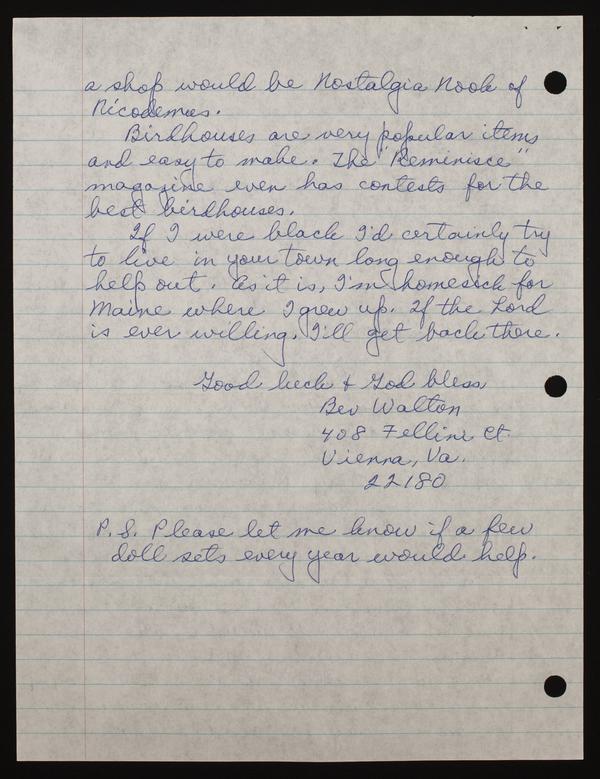 a shop would be Nostalgia Nook of
Nicodemus.
Birdhouses are very popular items
and easy to make. The "Reminisce"
magazine even has contests for the
best birdhouses.
If I were black I'd certainly try
to live in your town long enough to
help out. As it is, I'm homesick for
Maine where I grew up. If the Lord
is ever willing, I'll get back there.
Good luck & God bless
Bev Walton
408 Fellini Ct.
Vienna, Va.
22180
P.S. Please let me know if a few
doll sets every year would help.